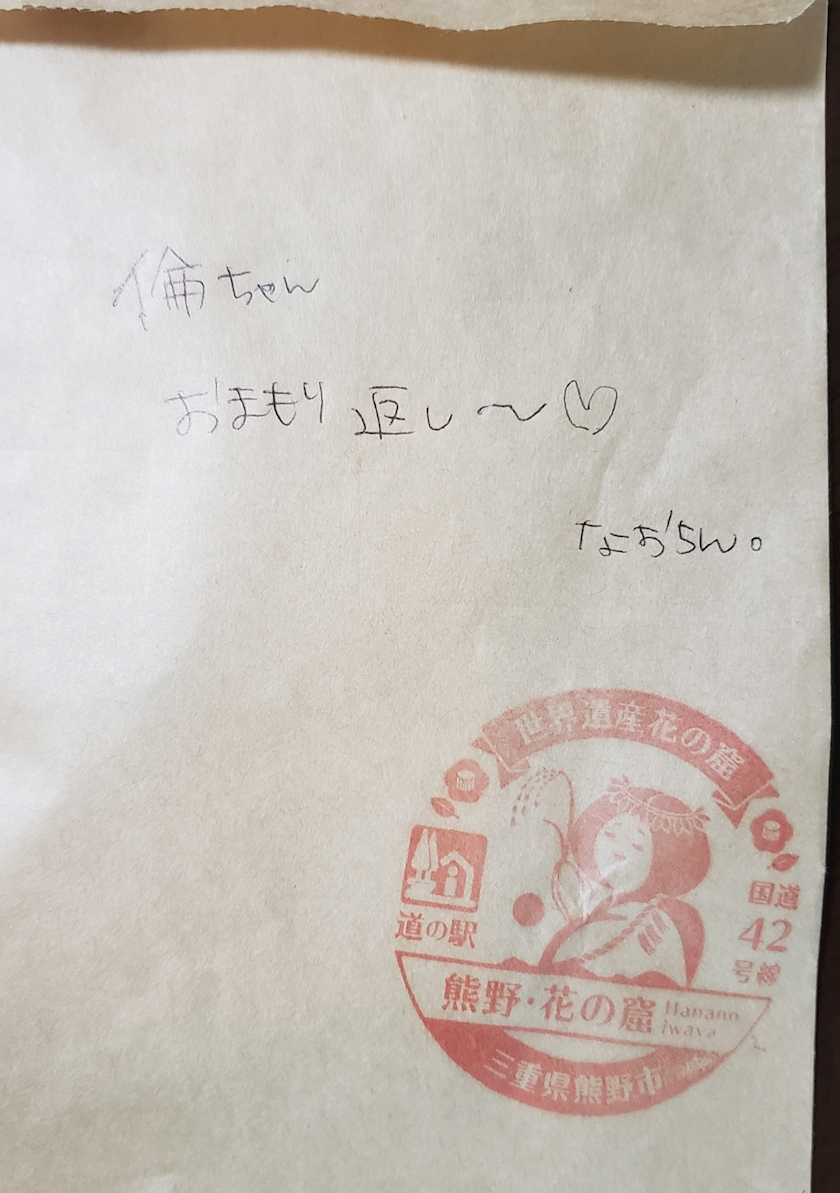 倫ちゃん
おまもり返し〜♡
なおちん。
世界遺産花の窟
道の駅
国道
42
号線
熊野・花の窟
Hanano
Iwaya
三重県熊野市